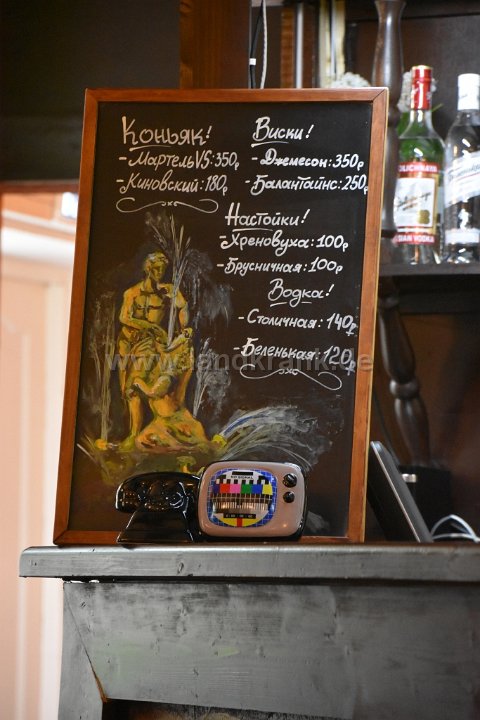 Коньяк!
- Мартель VS: 350р
- Киновский: 180р
Виски!
- Джемесон: 350р
- Балантайнс: 250р
Настойки!
- Хреновуха: 100р
- Брусничная: 100р
Водка!
- Столичная: 140р
- Беленькая: 120р
www.landkrank.de